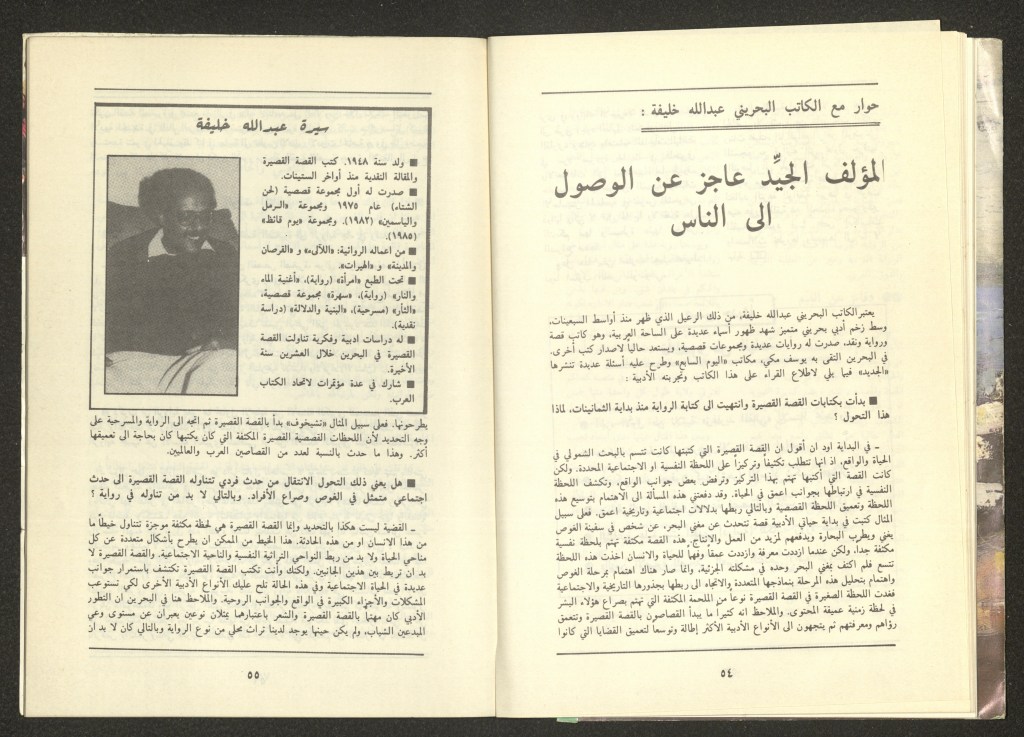 حوار مع الكاتب البحريني عبدالله خليفة :
المؤلف الجيِّد عاجز عن الوصول
الى الناس
يعتبر الكاتب البحريني عبدالله خليفة، من ذلك الرعيل الذي ظهر منذ أواسط السبعينات،
وسط زخم أدبي بحريني متميز شهد ظهور أسماء عديدة على الساحة العربية، وهو كاتب قصة
ورواية ونقد، صدرت له روايات عديدة ومجموعات قصصية، ويستعد حالياً لاصدار كتب أخرى.
في البحرين التقى به يوسف مكي، مكاتب «اليوم السابع» وطرح عليه أسئلة عديدة تنشرها
«الجديد» فيما يلي لاطلاع القراء على هذا الكاتب وتجربته الأدبية :
■ بدأت بكتابات القصة القصيرة وانتهيت الى كتابة الرواية منذ بداية الثمانينات، لماذا
هذا التحول ؟
ـ في البداية اود ان أقول ان القصة القصيرة التي كتبتها كانت تتسم بالبحث الشمولي في
الحياة والواقع، اذ انها تتطلب تكثيفاً وتركيزاً على اللحظة النفسية او الاجتماعية المحددة. ولكن
كانت القصة التي أكتبها تهتم بهذا التركيز وترفض بعض جوانب الواقع، وتكشف اللحظة
النفسية في ارتباطها بجوانب اعمق في الحياة. وقد دفعتني هذه المسألة الى الاهتمام بتوسيع هذه
اللحظة وتعميق اللحظة القصصية وبالتالي ربطها بدلالات اجتماعية وتاريخية اعمق. فعلى سبيل
المثال كتبت في بداية حياتي الأدبية قصة تتحدث عن مغني البحر، عن شخص في سفينة الغوص
يغني ويطرب البحارة ويدفعهم لمزيد من العمل والإنتاج. هذه القصة مكثفة تهتم بلحظة نفسية
مكثفة جداً، ولكن عندما ازددت معرفة وازددت عمقاً وفهماً للحياة والانسان اخذت هذه اللحظة
تتسع فلم اكتف بمغني البحر وحده في مشكلته الجزئية، وانما صار هناك اهتمام بمرحلة الغوص
واهتمام بتحليل هذه المرحلة بنماذجها المتعددة والاتجاه الى ربطها بجذورها التاريخية والاجتماعية
فغدت اللحظة الصغيرة في القصة القصيرة نوعاً من الملحمة المكثفة التي تهتم بصراع هؤلاء البشر
في لحظة زمنية عميقة المحتوى. والملاحظ انه كثيراً ما يبدأ القصاصون بالقصة القصيرة وتتعمق
رؤاهم ومعرفتهم ثم يتجهون الى الأنواع الأدبية الأكثر إطالة وتوسعاً لتعميق القضايا التي كانوا
٥٤
سيرة عبدالله خليفة
■ ولد سنة ١٩٤٨. كتب القصة القصيرة
والمقالة النقدية منذ أواخر الستينات.
■ صدرت له أول مجموعة قصصية (لحن
الشتاء) عام ١٩٧٥ ومجموعة «الرمل
والياسمين» (١٩٨٢). ومجموعة «يوم قائظ»
(١٩٨٥).
■ من اعماله الروائية: «اللآلىء» و «القرصان
والمدينة» و «الهيرات».
■ تحت الطبع «امرأة» (رواية)، «أغنية الماء
والنار» (رواية)، «سهرة» مجموعة قصصية،
«الثأر» (مسرحية)، «البنية والدلالة» (دراسة
نقدية).
■ له دراسات ادبية وفكرية تناولت القصة
القصيرة في البحرين خلال العشرين سنة
الأخيرة.
■ شارك في عدة مؤتمرات لاتحاد الكتاب
العرب.
يطرحونها. فعلى سبيل المثال «تشيخوف» بدأ بالقصة القصيرة ثم اتجه الى الرواية والمسرحية على
وجه التحديد لأن اللحظات القصصية القصيرة المكثفة التي كان يكتبها كان بحاجة الى تعميقها
أكثر. وهذا ما حدث بالنسبة لعدد من القصاصين العرب والعالميين.
■ هل يعني ذلك التحول الانتقال من حدث فردي تتناوله القصة القصيرة الى حدث
اجتماعي متمثل في الغوص وصراع الأفراد. وبالتالي لا بد من تناوله في رواية ؟
ـ القضية ليست هكذا بالتحديد وإنما القصة القصيرة هي لحظة مكثفة موجزة تتناول خيطاً ما
من هذا الانسان او من هذه الحادثة. هذا الخيط من الممكن ان يطرح بأشكال متعددة عن كل
مناحي الحياة ولا بد من ربط النواحي التراثية النفسية والناحية الاجتماعية. والقصة القصيرة لا
بد ان تربط بين هذين الجانبين. ولكنك وأنت تكتب القصة القصيرة تكتشف باستمرار جوانب
عديدة في الحياة الاجتماعية وفي هذه الحالة تلح عليك الأنواع الأدبية الأخرى لكي تستوعب
المشكلات والأجزاء الكبيرة في الواقع والجوانب الروحية. والملاحظ هنا في البحرين ان التطور
الأدبي كان مهتماً بالقصة القصيرة والشعر باعتبارهما يمثلان نوعين يعبران عن مستوى وعي
المبدعين الشباب، ولم يكن حينها يوجد لدينا تراث محلي من نوع الرواية وبالتالي كان لا بد ان
٥٥